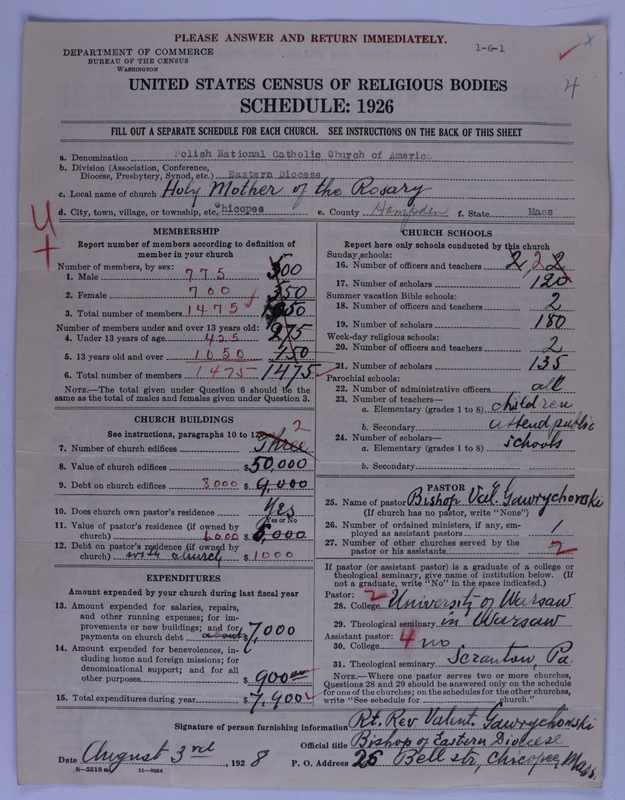 PLEASE ANSWER AND RETURN IMMEDIATELY.
DEPARTMENT OF COMMERCE
BUREAU OF THE CENSUS
WASHINGTON
1-6-1
4
UNITED STATES CENSUS OF RELIGIOUS BODIES
SCHEDULE: 1926
FILL OUT A SEPARATE SCHEDULE FOR EACH CHURCH. SEE INSTRUCTIONS ON THE BACK OF THIS SHEET
a. Denomination Polish National Catholic Church of America
b. Division (Association, Conference, Diocese, Presbytery, Synod, etc.) Eastern Diocese
c. Local name of church Holy Mother of the Rosary
d. City, town, village, or township, etc. Chicopee e. County Hampden f. State Mass
MEMBERSHIP
Report number of members according to definition of member in your church
Number of members, by sex:
1. Male 775
2. Female 700 350
3. Total number of members 1475
Number of members under and over 13 years old:
4. Under 13 years of age 425 275
5. 13 years old and over 1050 750
6. Total number of members 1475 1475
NOTE.—The total given under Question 6 should be the same as the total of males and females given under Question 3.
CHURCH BUILDINGS
See instructions, paragraphs 10 to 12
7. Number of church edifices Three 2
8. Value of church edifices $50,000
9. Debt on church edifices 8000 $9,000
10. Does church own pastor's residence? Yes
Yes or No
11. Value of pastor's residence (if owned by church) 6000 $6,000
12. Debt on pastor's residence (if owned by church) with church $1000
EXPENDITURES
Amount expended by your church during last fiscal year
13. Amount expended for salaries, repairs, and other running expenses; for improvements or new buildings; and for payments on church debt about $7,000
14. Amount expended for benevolences, including home and foreign missions; for denominational support; and for all other purposes $900
15. Total expenditures during year $7,900
CHURCH SCHOOLS
Report here only schools conducted by this church
Sunday schools:
16. Number of officers and teachers 2, 2 2
17. Number of scholars 120
Summer vacation Bible schools:
18. Number of officers and teachers 2
19. Number of scholars 180
Week-day religious schools:
20. Number of officers and teachers 2
21. Number of scholars 135
Parochial schools:
22. Number of administrative officers all
23. Number of teachers—
a. Elementary (grades 1 to 8) children
b. Secondary attend public
24. Number of scholars—
a. Elementary (grades 1 to 8) schools
b. Secondary
PASTOR
25. Name of pastor Bishop Val. Gawrychowski
(If church has no pastor, write "None")
26. Number of ordained ministers, if any, employed as assistant pastors 1
27. Number of other churches served by the pastor or his assistants 2
If pastor (or assistant pastor) is a graduate of a college or theological seminary, give name of institution below. (If not a graduate, write "No" in the space indicated.)
Pastor: 2
28. College University of Warsaw
29. Theological seminary in Warsaw
Assistant pastor: 4
30. College no
31. Theological seminary Scranton, Pa.
NOTE.—Where one pastor serves two or more churches, Questions 28 and 29 should be answered only on the schedule for one of the churches; on the schedules for the other churches, write "See schedule for church."
Signature of person furnishing information Rt. Rev. Valent. Gawrychowski
Official title Bishop of Eastern Diocese
Date August 3rd, 1928 P. O. Address 26 Bell str, Chicopee, Mass.
6-5518a 11-9084